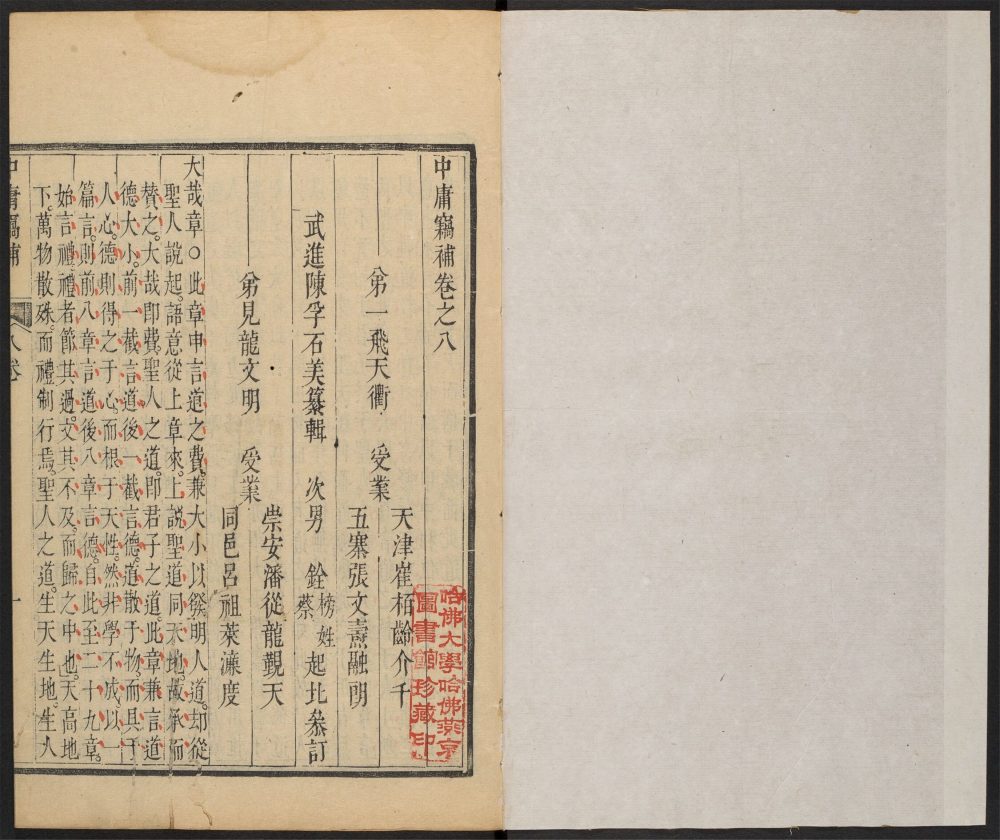 中庸竊補卷之八
弟一飛天衢　受業
天津崔栢齡介千
五寨張文燾融明
武進陳孚石美纂輯　次男　銓榜姓蔡起比叅訂
弟見龍文明　受業
崇安潘從龍覲天
同邑呂祖萊濂度
大哉章○此章申言道之費兼大小以發明人道却從
聖人說起語意從上章來上說聖道同天地故承而
賛之大哉即費聖人之道即君子之道此章兼言道
德大小前一截言道後一截言德道散于物而具于
人心德則得之于心而根于天性然非學不成以一
篇言則前八章言道後八章言德自此至二十九章
始言禮禮者節其過文其不及而歸之中也天高地
下萬物散殊而禮制行焉聖人之道生天生地生人
中庸竊補
八卷
一
哈佛大學哈佛燕京
圖書館珍藏印